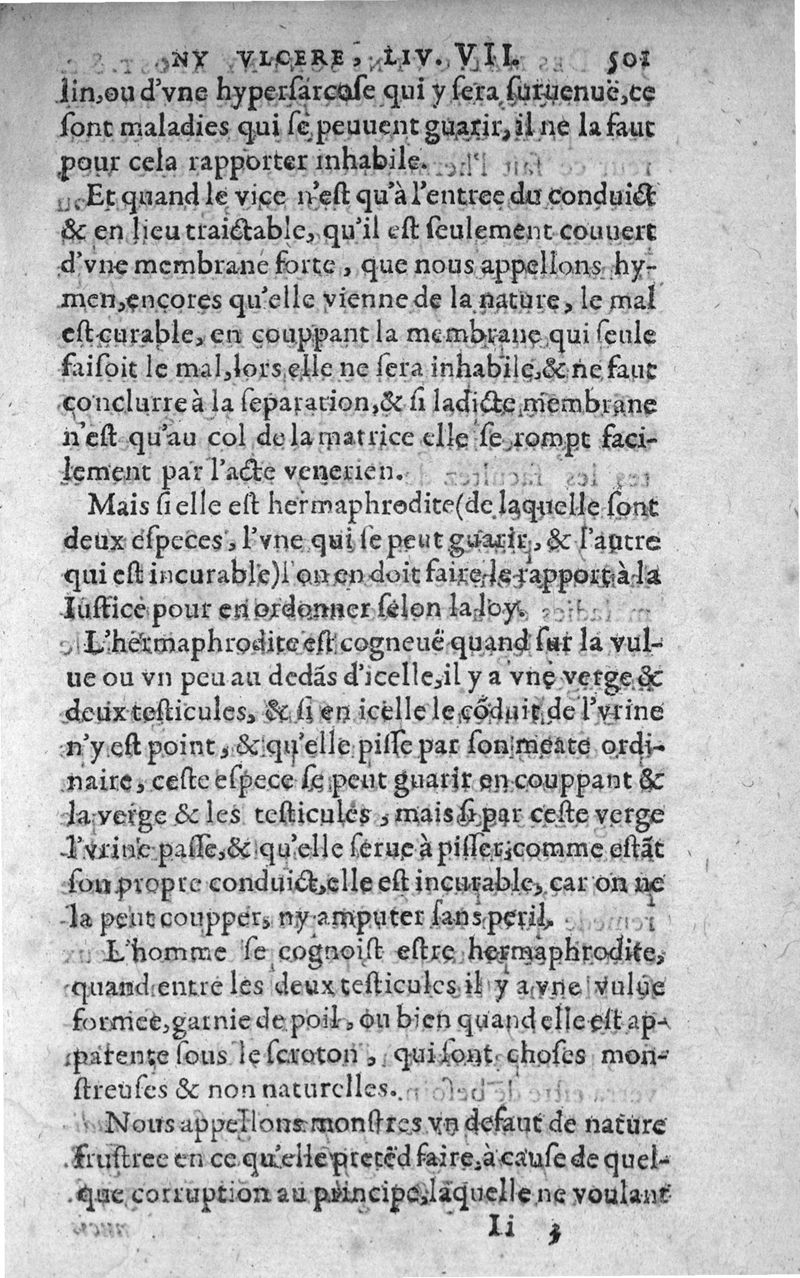 NY VLCERE, LIV. VII. 501
lin, ou d'vne hypersarcose qui y sera suruenuë, ce
sont maladies qui se peuuent guarir, il ne la faut
pour cela rapporter inhabile.
Et quand le vice n'est qu'à l'entree du conduict
& en lieu traictable, qu'il est seulement couuert
d'vne membrane forte, que nous appellons hy-
men, encores qu'elle vienne de la nature, le mal
est curable, en couppant la membrane qui seule
faisoit le mal, lors elle ne sera inhabile, & ne faut
conclurre à la separation, & si ladicte membrane
n'est qu'au col de la matrice elle se rompt faci-
lement par l'acte venerien.
Mais si elle est hermaphrodite (de laquelle sont
deux especes, l'vne qui se peut guarir, & l'autre
qui est incurable) l'on en doit faire le rapport à la
Iustice pour en ordonner selon la loy.
L'hermaphrodite est cogneuë quand sur la vul-
ue ou vn peu au dedãs d'icelle, il y a vne verge &
deux testicules, & si en icelle le cõduit de l'vrine
n'y est point, & qu'elle pisse par son meate ordi-
naire, ceste espece se peut guarir en couppant &
la verge & les testicules, mais si par ceste verge
l'vrine passe, & qu'elle serue à pisser, comme estãt
son propre conduict, elle est incurable, car on ne
la peut coupper, ny amputer sans peril.
L'homme se cognoist estre hermaphrodite,
quand entre les deux testicules il y a vne vulue
formee, garnie de poil, ou bien quand elle est ap-
parente sous le scroton, qui sont choses mon-
streuses & non naturelles.
Nous appellons monstres vn defaut de nature
frustree en ce qu'elle pretẽd faire, à cause de quel-
que corruption au principe, laquelle ne voulant
Ii 3